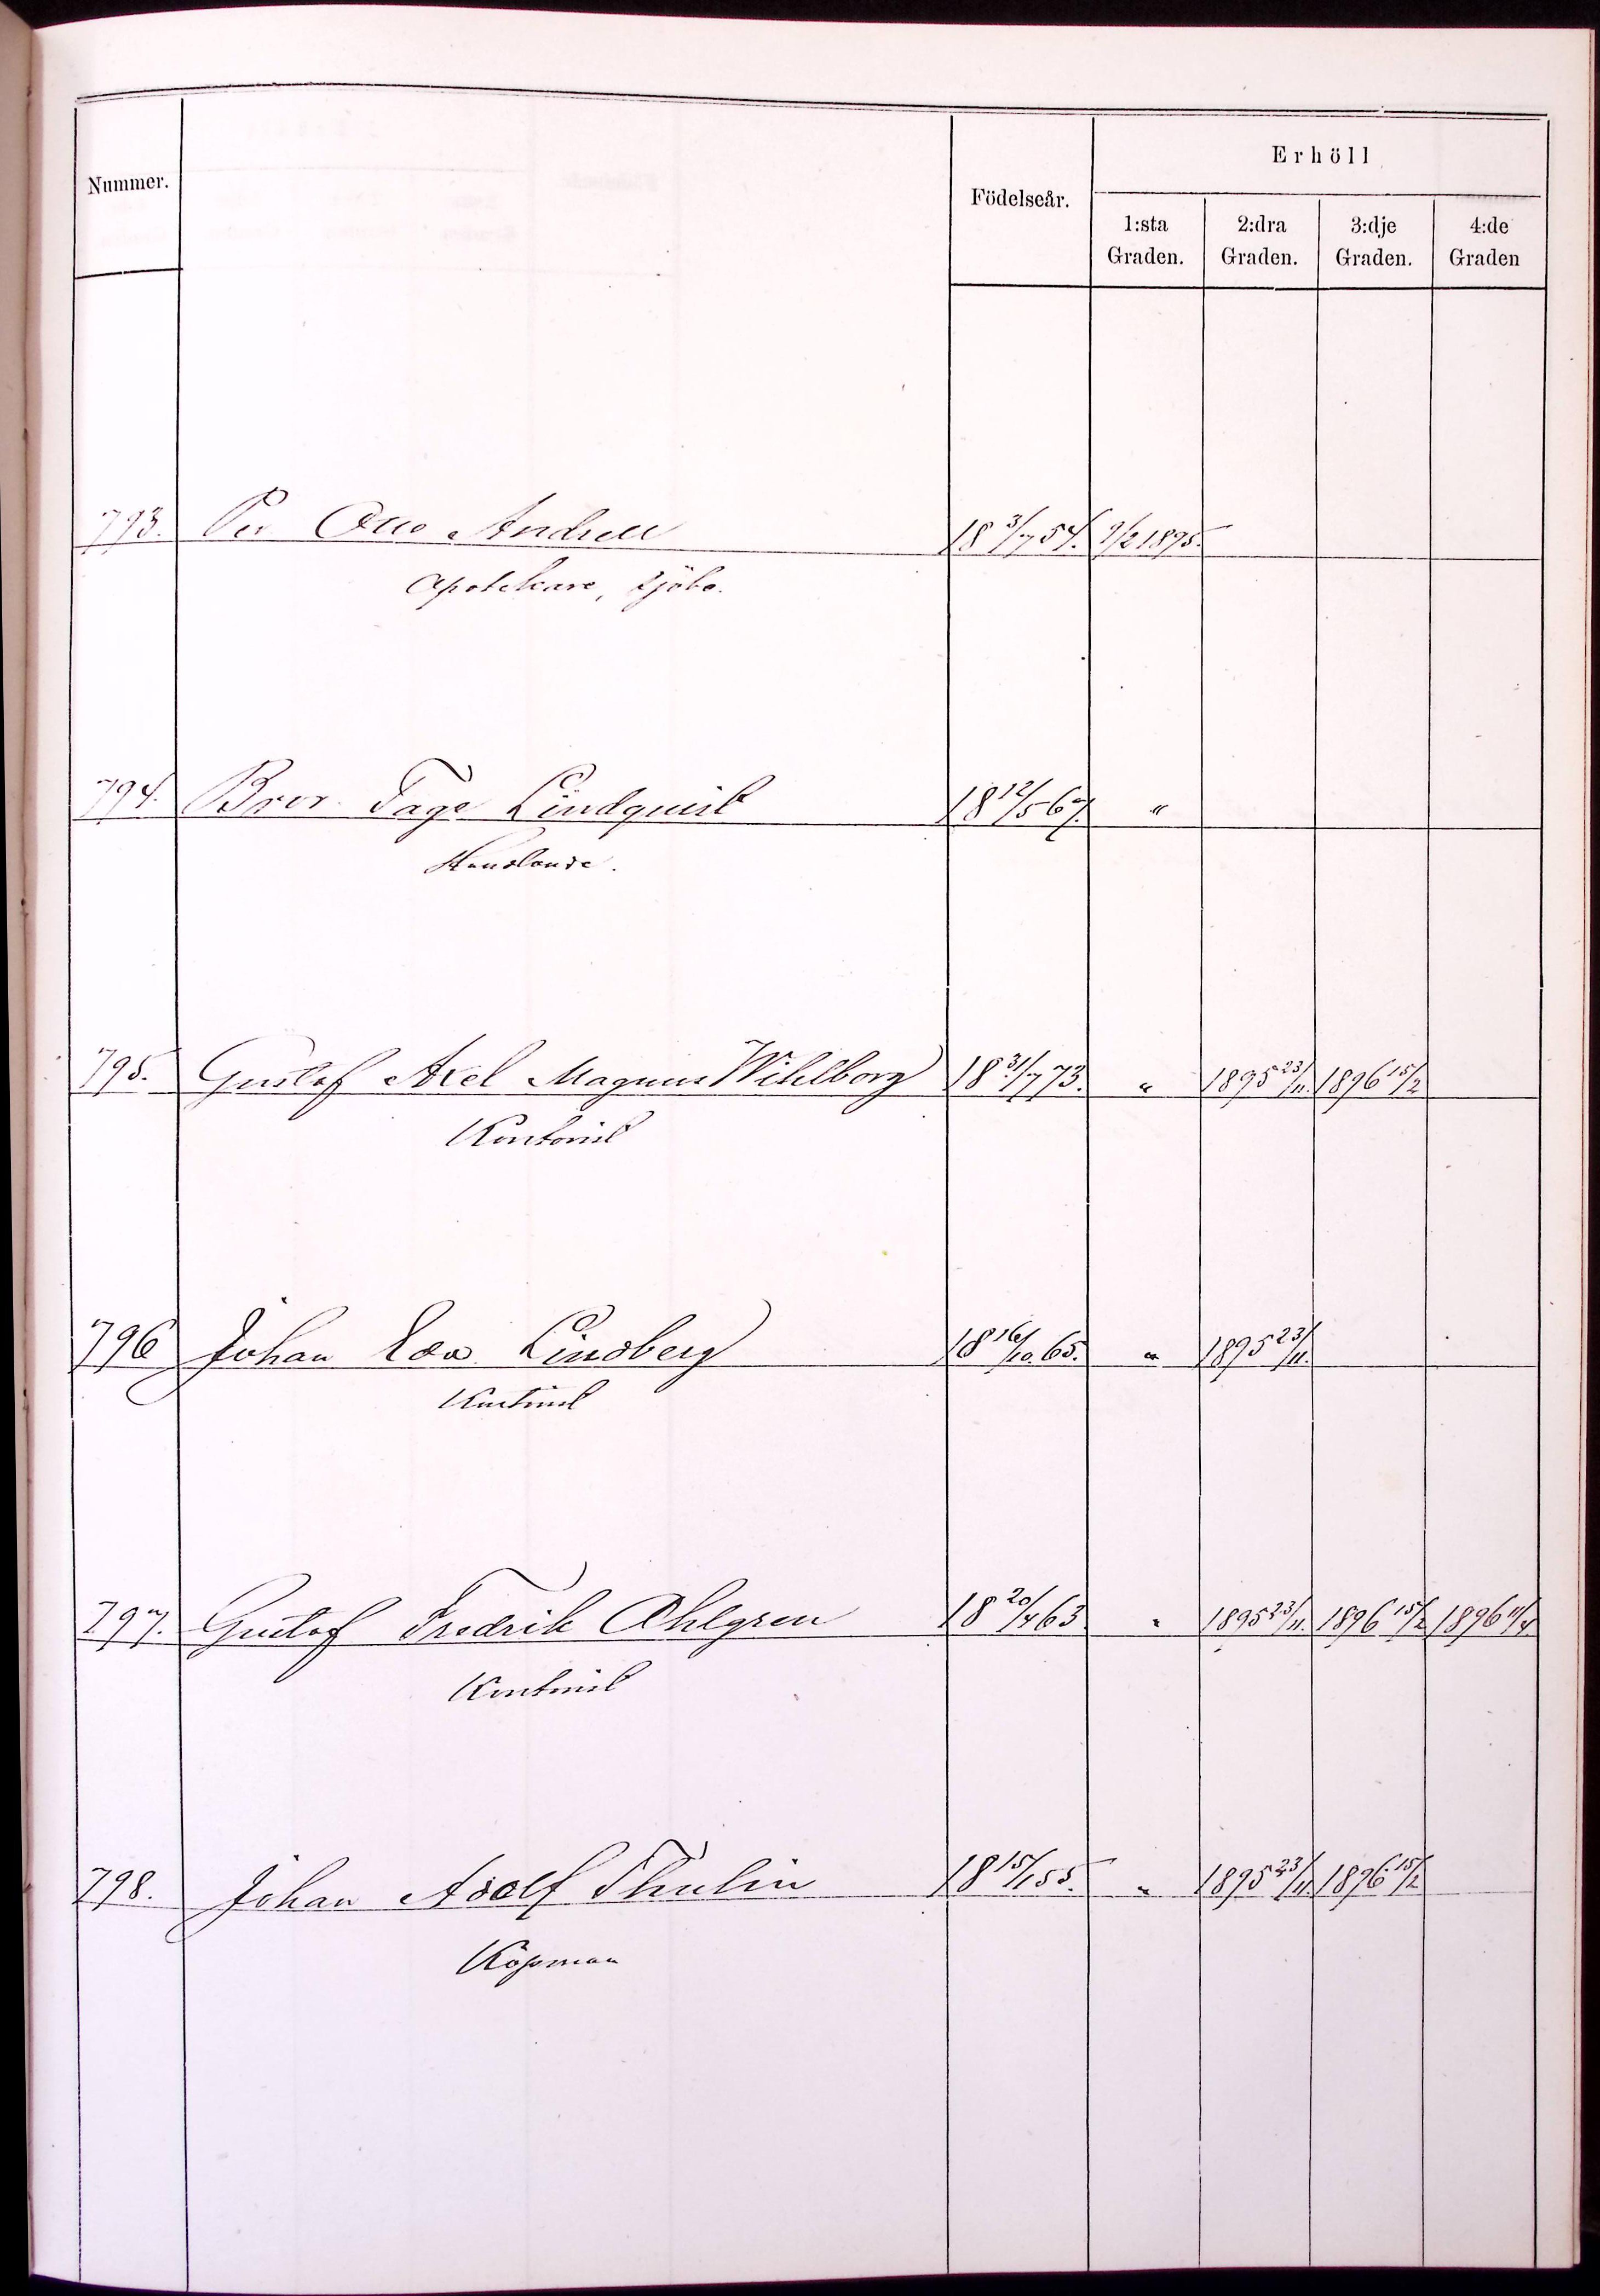 Erhöll
Nummer.
Födelseår.
1:sta Graden.
2:dra Graden.
3:dje Graden.
4:de Graden
793. Per Otto Andrell 18 3/7 54. 9/2 1895.
Apotekare, Sjöbo.
794. Bror Tage Lindquist 18 12/5 67. "
Handlande.
795. Gustaf Axel Magnus Wihlborg 18 31/7 73. " 1895 23/11. 1896 15/2
Kontorist
796 Johan Edv. Lindberg 18 16/10. 65. " 1895 23/11.
Kontorist
797. Gustaf Fredrik Ahlgren 18 20/4 63 " 1895 23/11. 1896 15/2 1896 11/4.
Kontorist
798. Johan Adolf Thulin 18 15/1 55. " 1895 23/11 1896 15/2
Köpman